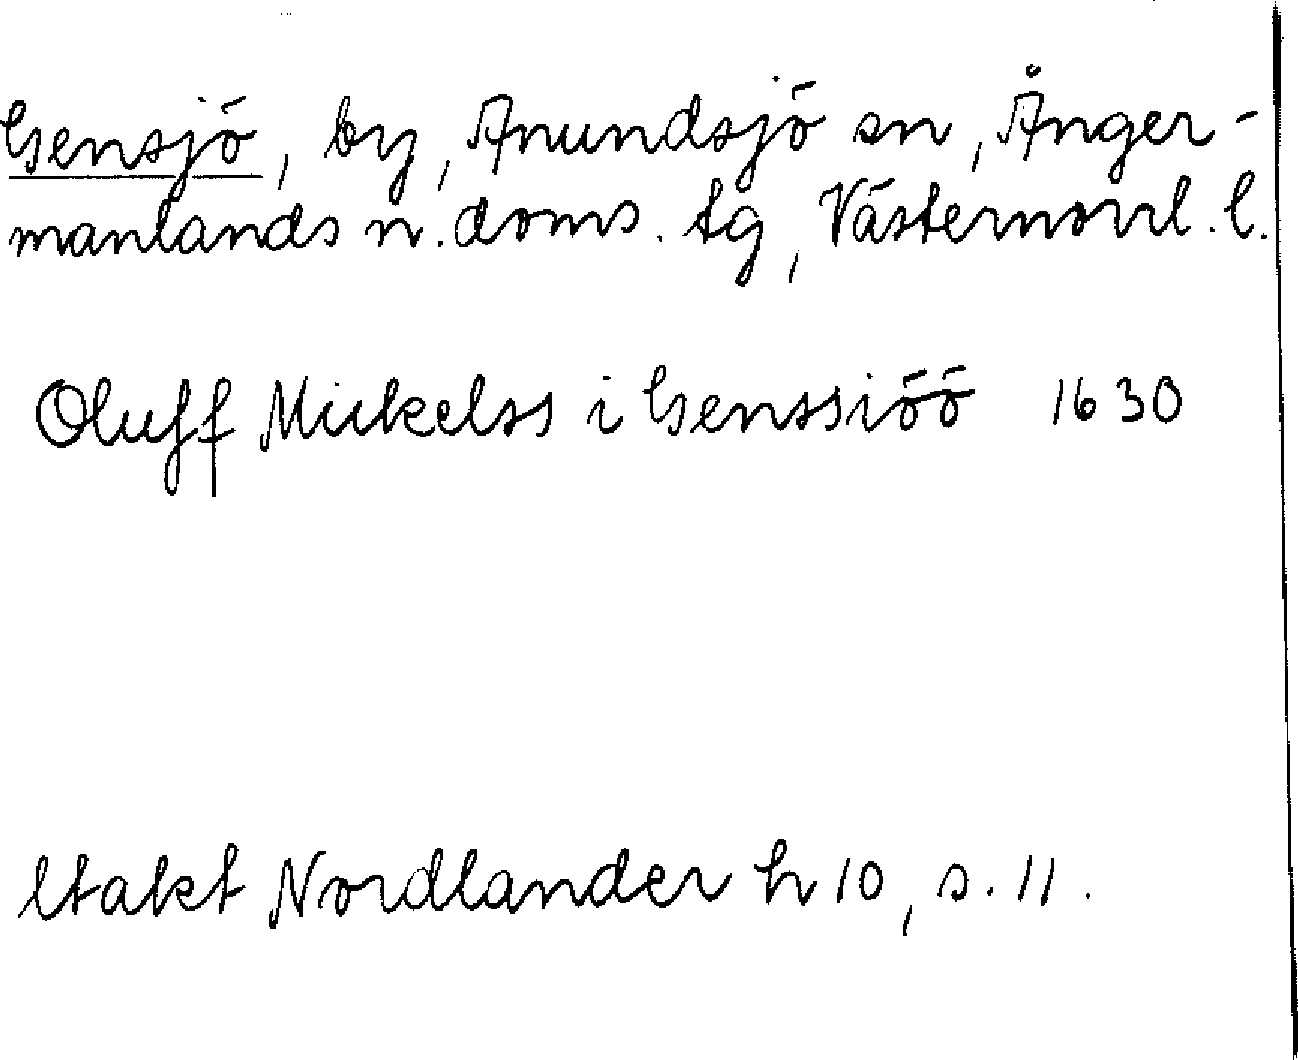 Gensjö, by, Anundsjö sn, Ånger-
manlands n. doms. tg, Västernorrl. l.
Oluff Mickelss i Genssiöö 1630
Utakt Nordlander h 10, s. 11.